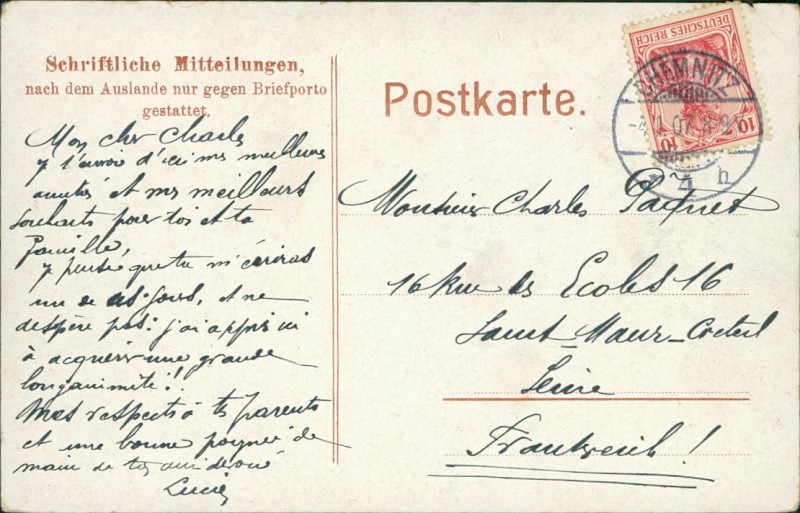 Schriftliche Mitteilungen,
nach dem Auslande nur gegen Briefporto
gestattet.
Mon cher Charles
J't'envoie d'ici mes meilleures
amitiés et mes meilleurs
souhaits pour toi et ta
famille,
J'pense que tu m'écriras
un de ces-jours, et ne
despère pas: j'ai appris ici
à acquérir une grande
longanimité!
Mes respects à tes parents
et une bonne poignée de
main de ton ami dévoué
Lucien
Postkarte.
DEUTSCHES REICH
10
10
CHEMNITZ
07
h
Monsieur Charles Paquet
16 Rue des Ecoles 16
Saint-Maur-Créteil
Seine
Frankreich!